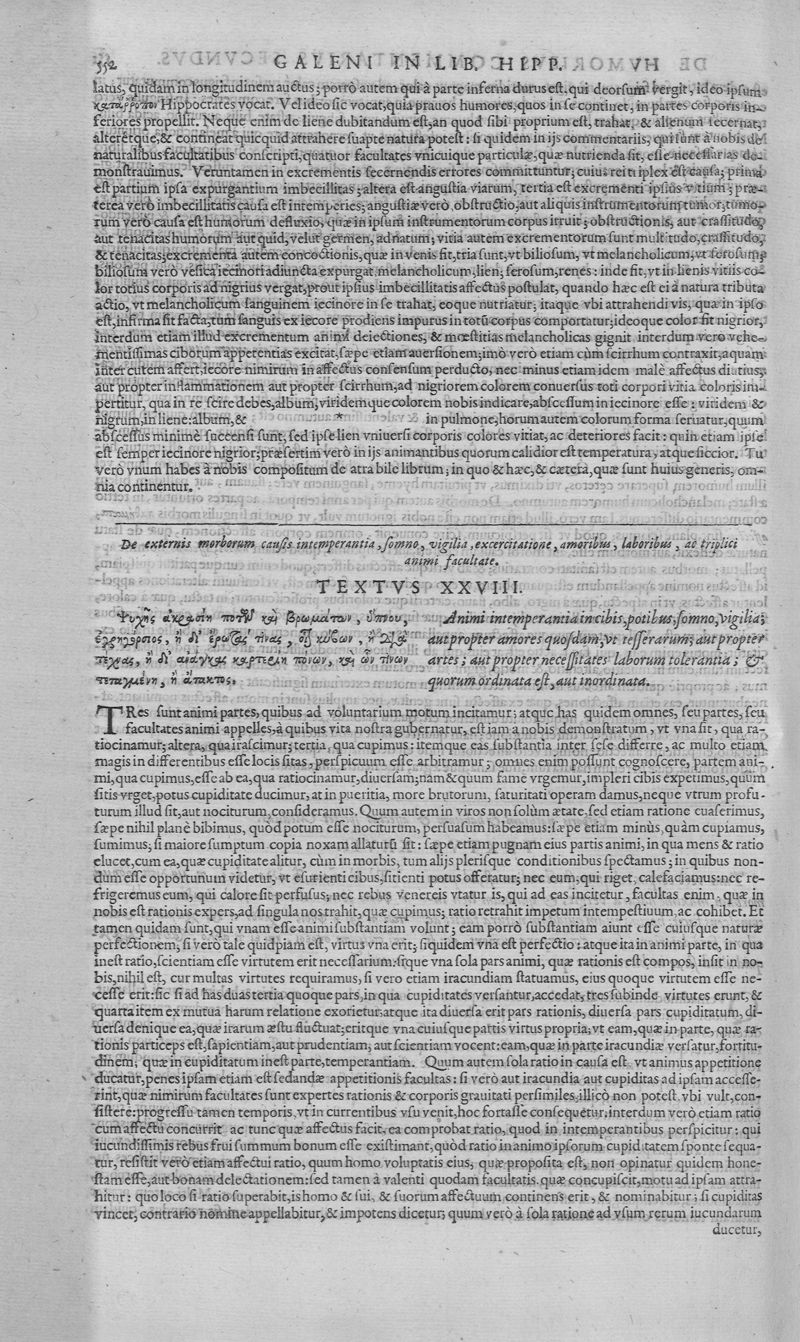 552 GALENI IN LIB. HIPP.
latus, quidam in longitudinem auctus; porrò autem qui à parte inferna durus est, qui deorsum vergit, ideo ipsum
Hippocrates vocat. Vel ideo sic vocat, quia prauos humores, quos in se continet, in partes corporis in-
feriores propellit. Neque enim de liene dubitandum est, an quod sibi proprium est, trahat, & alienum secernat,
alteretque, & contineat quicquid attrahere suapte natura potest: si quidem in ijs commentariis, qui sunt à nobis de
naturalibus facultatibus conscripti, quatuor facultates vnicuique particulæ, quæ nutrienda sit, esse necessarias de-
monstrauimus. Veruntamen in excrementis secernendis errores committuntur; cuius rei triplex est causa; prima
est partium ipsa expurgantium imbecillitas; altera est angustia viarum, tertia est excrementi ipsius vitium; præ-
terea verò imbecillitatis causa est intemperies; angustiæ verò obstructio, aut aliquis instrumentorum tumor; tumo-
rum verò causa est humorum defluxio, quæ in ipsum instrumentorum corpus irruit; obstructionis, aut crassitudo,
aut tenacitas humorum aut quid, velut germen, adnatum; vitia autem excrementorum sunt multitudo, crassitudo,
& tenacitas; excrementa autem concoctionis, quæ in venis fit, tria sunt, vt biliosum, vt melancholicum, vt serosum;
biliosum verò vesica iecinori adiuncta expurgat, melancholicum, lien; serosum, renes: inde fit, vt in lienis vitiis co-
lor totius corporis ad nigrius vergat, prout ipsius imbecillitatis affectus postulat, quando hæc est ei à natura tributa
actio, vt melancholicum sanguinem iecinore in se trahat, eoque nutriatur; itaque vbi attrahendi vis, quæ in ipso
est, infirma sit facta, tum sanguis ex iecore prodiens impurus in totū corpus comportatur; ideoque color fit nigrior,
interdum etiam illud excrementum animi deiectiones, & mœstitias melancholicas gignit interdum vero vehe-
mentissimas ciborum appetentias excitat, sæpe etiam auersionem; imò verò etiam cùm scirrhum contraxit, aquam
inter cutem affert, iecore nimirum in affectus consensum perducto, nec minus etiam idem malè affectus diutius,
aut propter inflammationem aut propter scirrhum, ad nigriorem colorem conuersus toti corpori vitia coloris im-
pertitur, qua in re scire debes, album, viridemque colorem nobis indicare, abscessum in iecinore esse: viridem &
nigrum, in liene: album, & * in pulmone, horum autem colorum forma seruatur, quum
abscessus minimè succensi sunt, sed ipse lien vniuersi corporis colores vitiat, ac deteriores facit: quin etiam ipse
est semper iecinore nigrior; præsertim verò in ijs animantibus quorum calidior est temperatura, atque siccior. Tu
verò vnum habes à nobis compositum de atra bile librum; in quo & hæc, & cætera, quæ sunt huius generis, om-
nia continentur.
De externis morborum causis intemperantia, somno, vigilia, excercitatione, amoribus, laboribus, ac triplici
animi facultate.
TEXTVS XXVIII.
Ψυχῆς ἀκρασίη ποτῶν καὶ βρωμάτων, ὕπνου,
ἐγρηγόρσιος, ἢ δι' ἔρωτάς τινας, οἷον κύβων, ἢ διὰ
τέχνας, ἢ δι' ἀνάγκας καρτερίη πόνων, καὶ ὧν τίνων
τεταγμένη, ἢ ἄτακτος.
Animi intemperantia in cibis, potibus, somno, vigilia;
aut propter amores quosdam, vt tesserarum; aut propter
artes; aut propter necessitates laborum tolerantia; &
quorum ordinata est, aut inordinata.
TRes sunt animi partes, quibus ad voluntarium motum incitamur; atque has quidem omnes, seu partes, seu
facultates animi appelles, à quibus vita nostra gubernatur, est iam a nobis demonstratum, vt vna sit, qua ra-
tiocinamur; altera, qua irascimur; tertia, qua cupimus: itemque eas substantia inter sese differre, ac multo etiam
magis in differentibus esse locis sitas, perspicuum esse arbitramur; omnes enim possunt cognoscere, partem ani-
mi, qua cupimus, esse ab ea, qua ratiocinamur, diuersam; nam & quum fame vrgemur, impleri cibis expetimus, quum
sitis vrget, potus cupiditate ducimur, at in pueritia, more brutorum, saturitati operam damus, neque vtrum profu-
turum illud sit, aut nociturum, consideramus. Quum autem in viros non solùm ætate, sed etiam ratione euaserimus,
sæpe nihil planè bibimus, quòd potum esse nociturum, persuasum habeamus: sæpe etiam minùs, quàm cupiamus,
sumimus; si maiore sumptum copia noxam allaturū sit: sæpe etiam pugnam eius partis animi, in qua mens & ratio
elucet, cum ea, quæ cupiditate alitur, cùm in morbis, tum alijs plerisque conditionibus spectamus; in quibus non-
dum esse opportunum videtur, vt esurienti cibus, sitienti potus offeratur; nec eum, qui riget, calefaciamus: nec re-
frigeremus eum, qui calore sit perfusus; nec rebus venereis vtatur is, qui ad eas incitetur, facultas enim, quæ in
nobis est rationis expers, ad singula nos trahit, quæ cupimus; ratio retrahit impetum intempestiuum, ac cohibet. Et
tamen quidam sunt, qui vnam esse animi substantiam volunt; eam porrò substantiam aiunt esse cuiusque naturæ
perfectionem, si verò tale quidpiam est, virtus vna erit; siquidem vna est perfectio: atque ita in animi parte, in qua
inest ratio, scientiam esse virtutem erit necessarium: sique vna sola pars animi, quæ rationis est compos, insit in no-
bis, nihil est, cur multas virtutes requiramus, si vero etiam iracundiam statuamus, eius quoque virtutem esse ne-
cesse erit: sic si ad has duas tertia quoque pars, in qua cupiditates versantur, accedat, tres subinde virtutes erunt, &
quarta item ex mutua harum relatione exorietur: atque ita diuersa erit pars rationis, diuersa pars cupiditatum, di-
uersa denique ea, quæ irarum æstu fluctuat; eritque vna cuiusque partis virtus propria; vt eam, quæ in parte, quæ ra-
tionis particeps est, sapientiam, aut prudentiam; aut scientiam vocent: eam, quæ in parte iracundiæ versatur, fortitu-
dinem; quæ in cupiditatum inest parte, temperantiam. Quum autem sola ratio in causa est vt animus appetitione
ducatur, penes ipsam etiam est sedandæ appetitionis facultas: si verò aut iracundia aut cupiditas ad ipsam accesse-
rint, quæ nimirum facultates sunt expertes rationis & corporis grauitati persimiles, illicò non potest, vbi vult, con-
sistere: progressu tamen temporis, vt in currentibus vsu venit, hoc fortasse consequetur; interdum verò etiam ratio
cum affectu concurrit ac tunc quæ affectus facit, ea comprobat ratio, quod in intemperantibus perspicitur: qui
iucundissimis rebus frui summum bonum esse existimant, quòd ratio in animo ipsorum cupiditatem sponte sequa-
tur, resistit verò etiam affectui ratio, quum homo voluptatis eius, quæ proposita est, non opinatur quidem hone-
stam esse, aut bonam delectationem: sed tamen à valenti quodam facultatis, quæ concupiscit, motu ad ipsam attra-
hitur: quo loco si ratio superabit, is homo & sui, & suorum affectuum continens erit, & nominabitur; si cupiditas
vincet, contrario nomine appellabitur, & impotens dicetur; quum verò à sola ratione ad vsum rerum iucundarum
ducetur,